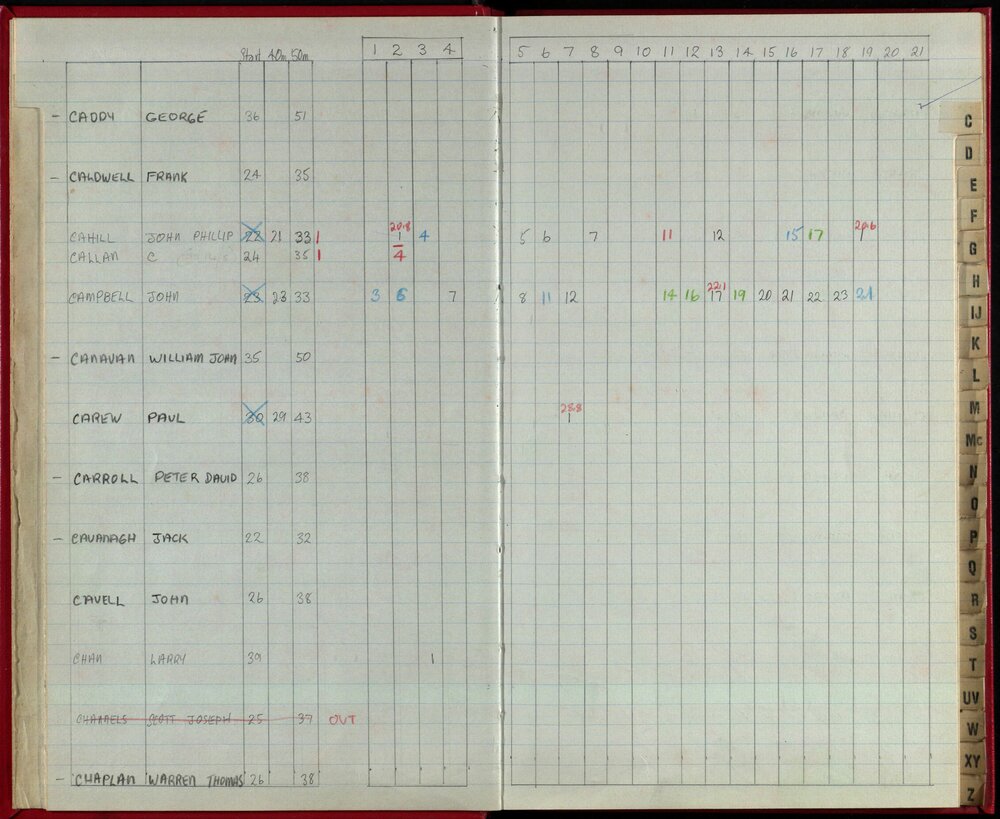 Start 40m 50m 1 2 3 4 5 6 7 8 9 10 11 12 13 14 15 16 17 18 19 20 21
- CADDY GEORGE 36 51
- CALDWELL FRANK 24 35
20.8 20.6
CAHILL JOHN PHILLIP 22 21 33 1 1 4 5 6 7 11 12 15 17 1
CALLAN C 24 35 1 4
22.1
CAMPBELL JOHN 23 23 33 3 6 7 8 11 12 14 16 17 19 20 21 22 23 21
- CANAVAN WILLIAM JOHN 35 50
28.8
CAREW PAUL 30 29 43 1
- CARROLL PETER DAVID 26 38
- CAVANAGH JACK 22 32
CAVELL JOHN 26 38
CHAN LARRY 39 1
CHANNELS SCOTT JOSEPH 25 37 OUT
- CHAPLAN WARREN THOMAS 26 38
C
D
E
F
G
H
IJ
K
L
M
Mc
N
O
P
Q
R
S
T
UV
W
XY
Z